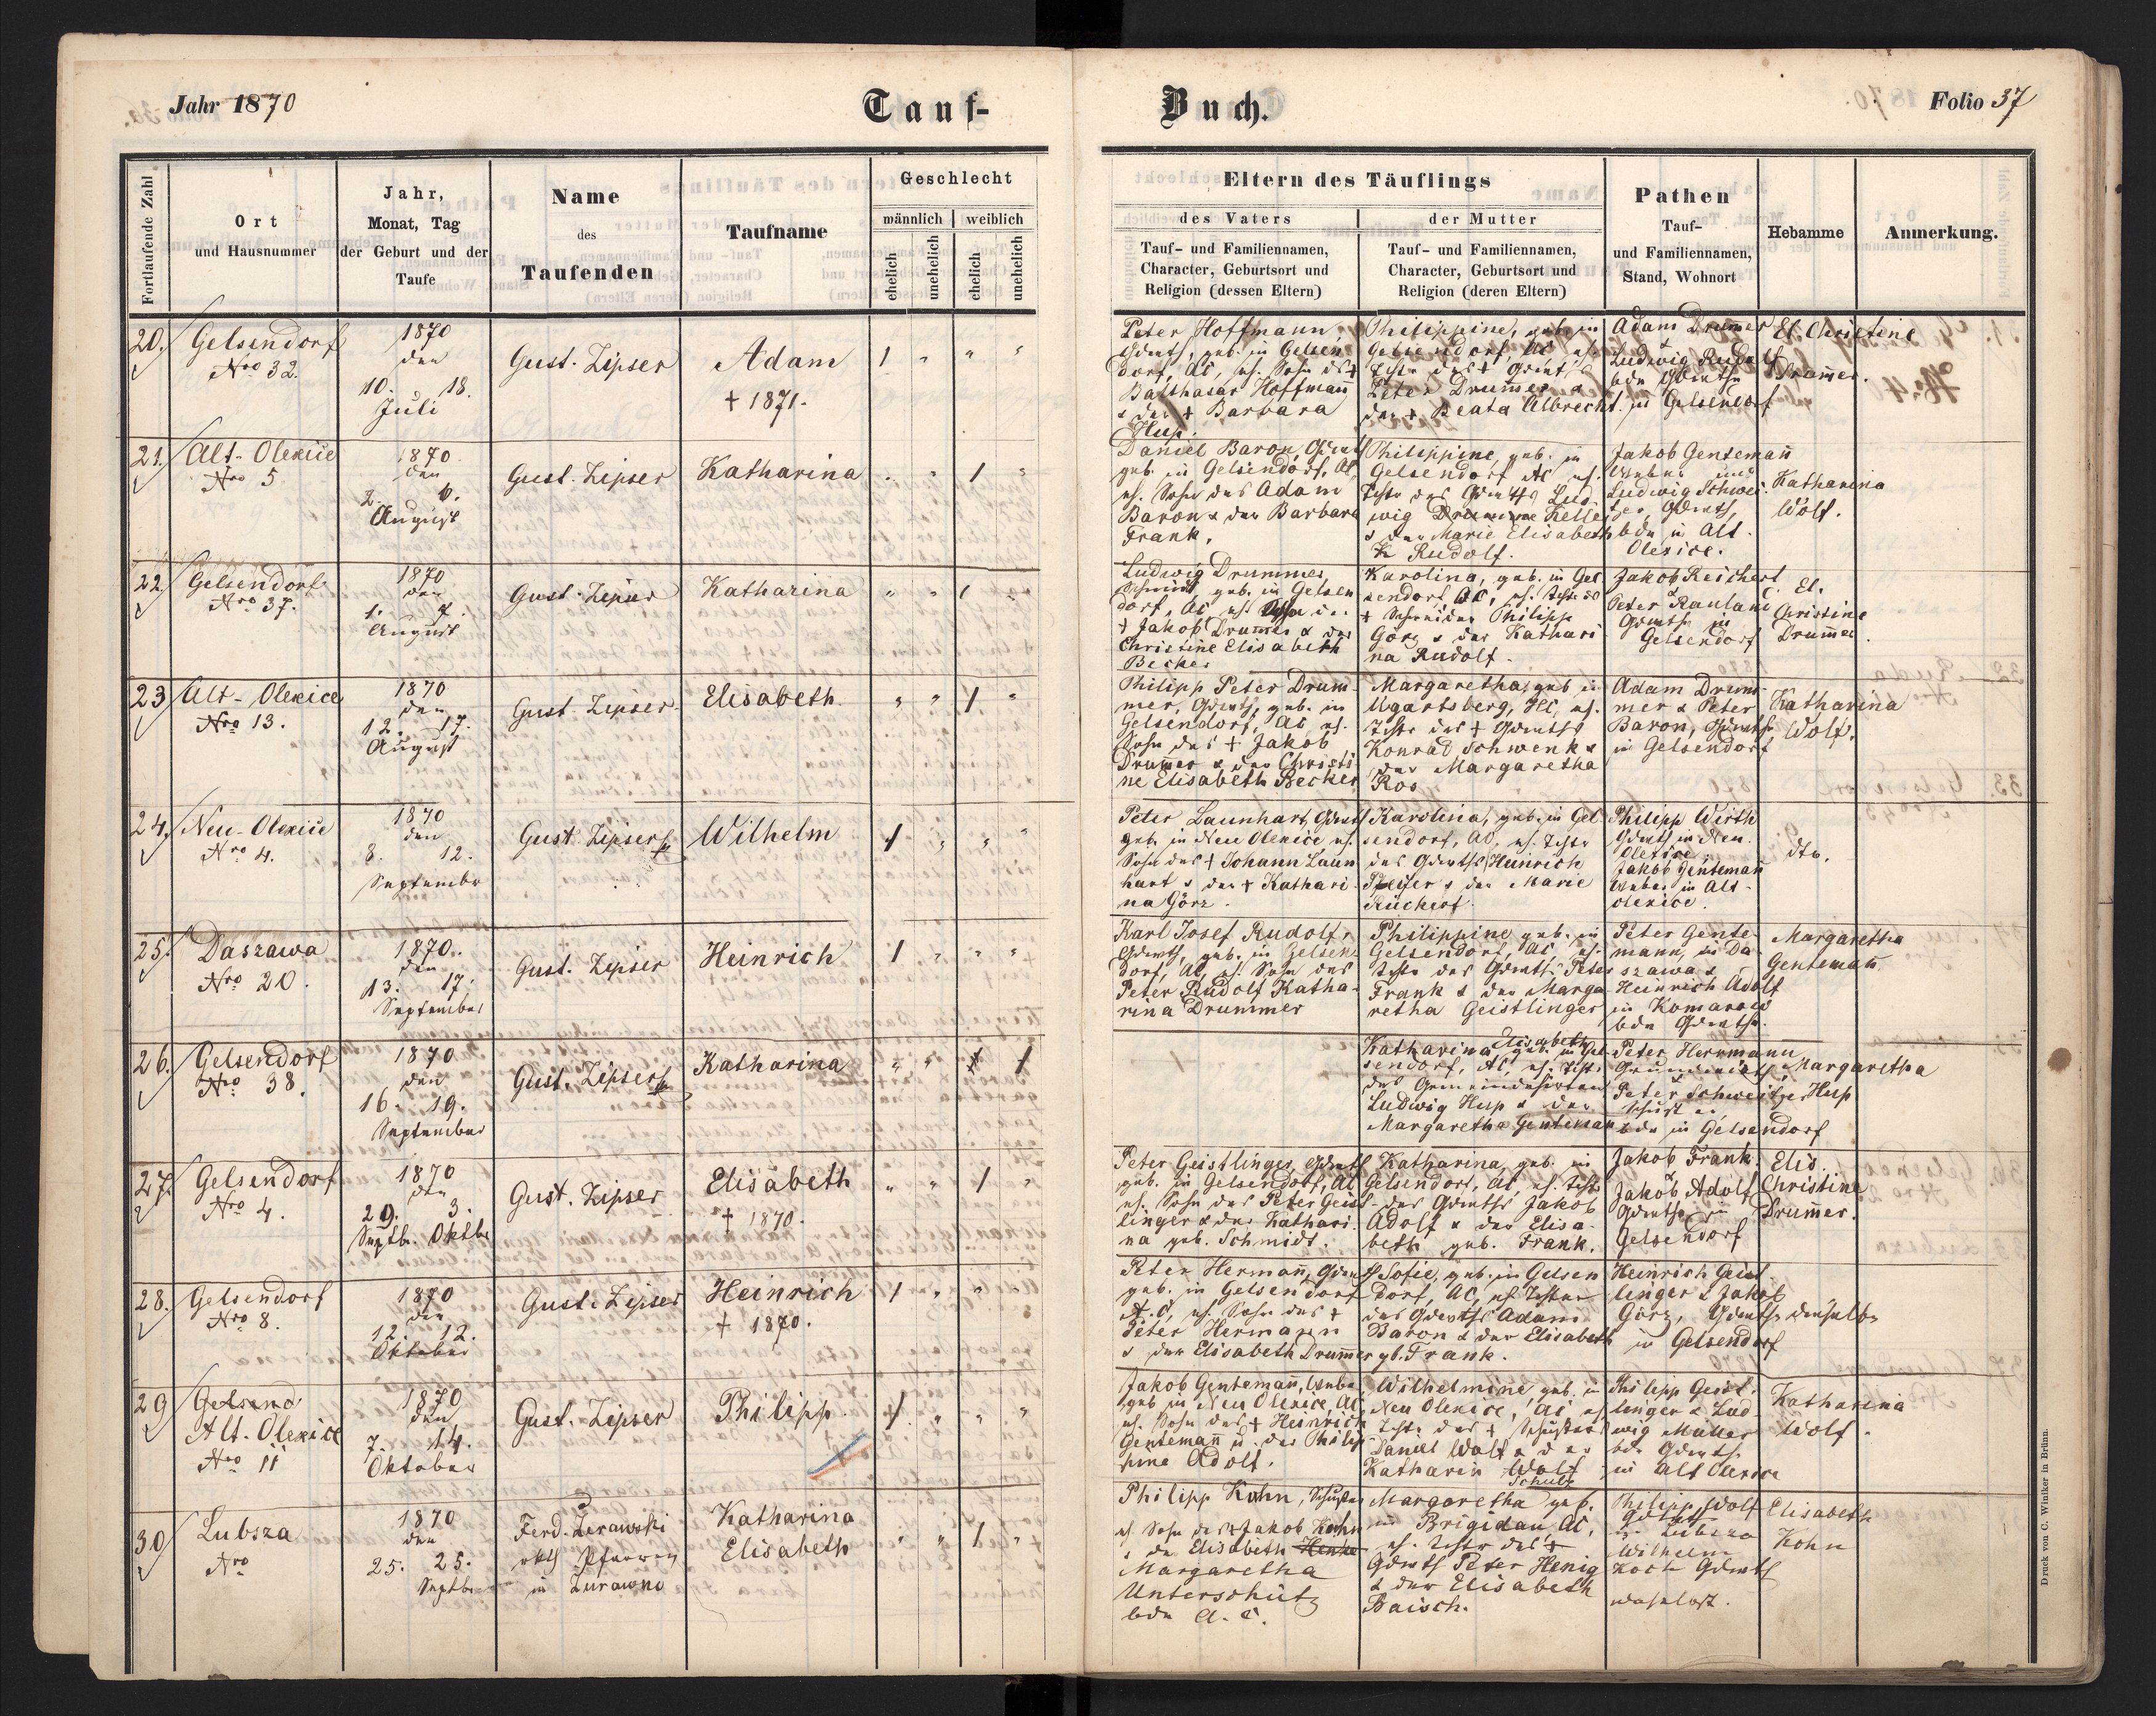 Jahr 1870
Tauf-
Buch.
Folio 37
Fortlaufende Zahl
Ort
und Hausnummer
Jahr,
Monat, Tag
der Geburt und der
Taufe
Name
des
Taufenden
Taufname
Geschlecht
männlich
weiblich
ehelich
unehelich
ehelich
unehelich
Eltern des Täuflings
des Vaters
Tauf- und Familiennamen,
Character, Geburtsort und
Religion (dessen Eltern)
der Mutter
Tauf- und Familiennamen,
Character, Geburtsort und
Religion (deren Eltern)
Pathen
Tauf-
und Familiennamen,
Stand, Wohnort
Hebamme
Anmerkung.
20.
Gelsendorf
Nro 32.
1870
den
10. 18.
Juli
Gust. Zipser
Adam
† 1871.
1 " " "
Peter Hoffmann
Gdwth, geb. in Gelsen
dorf, AC, eh. Sohn des †
Balthasar Hoffmann
& der † Barbara
Hup.
Philippine, geb. in
Gelsendorf, AC, eh.
Tocht. des † Gdwth
Peter Drumer &
der † Beata Albrecht
Adam Drumer
&
Ludwig Rudolf
bde Gdwthe
in Gelsendorf
El. Christine
Drumer.
21.
Alt-Olexice
Nro 5
1870
den
2. 6.
August
Gust. Zipser
Katharina
" " 1 "
Daniel Baron, Gdwth
geb. in Gelsendorf, AC
eh. Sohn des Adam
Baron & der Barbara
Frank.
Philippine, geb. in
Gelsendorf AC eh.
Tocht. des Gdwths Lud-
wig Drumme Keller
& der Marie Elisabeth
K Rudolf.
Jakob Gentemann
Weber und
Ludwig Schwei-
zer, Gdwth,
bde in Alt-
Olexice.
Katharina
Wolf.
22.
Gelsendorf
Nro 37.
1870
den
1. 7.
August
Gust. Zipser
Katharina
" " 1 "
Ludwig Drummer,
Schmied, geb. in Gelsen
dorf, AC eh. Sohn des
† Jakob Drumer & der
Christine Elisabeth
Becker
Karolina, geb. in Gel
sendorf AC, eh. Tocht. des
† Schneider Philipp
Görz & der Kathari
na Rudolf.
Jakob Reichert
&
Peter Kaulani
Gdwthe in
Gelsendorf
El.
Christine
Drumer.
23
Alt-Olexice
Nro 13.
1870
den
12. 17.
August
Gust. Zipser
Elisabeth
" " 1 "
Philipp Peter Drum-
mer, Gdwth, geb. in
Gelsendorf, AC eh.
Sohn des † Jakob
Drumer & der Christi
ne Elisabeth Becker
Margaretha, geb in
Ugartsberg, HC, eh.
Tocht. des † Gdwths
Konrad Schwenk &
der Margaretha
Ros
Adam Drum-
mer & Peter
Baron, Gdwthe
in Gelsendorf
Katharina
Wolf.
24.
Neu-Olexice
Nro 4.
1870
den
8. 12.
September
Gust Zipser
Wilhelm
1 " " "
Peter Launhart, Gdwth
geb. in Neu Olexice eh.
Sohn des † Johann Laun
hart & der † Kathari-
na Görz.
Karolina, geb. in Gel
sendorf, AC, eh. Tocht.
des Gdwths Heinrich
Pfeifer & der Marie
Rückert.
Philipp Wirth
Gdwth in Neu
Olexice
Jakob Gentemann
Weber in Alt-
olexice.
dto.
25.
Daszawa
Nro 20.
1870.
den
13. 17.
September
Gust. Zipser
Heinrich
1 " " "
Karl Josef Rudolf,
Gdwth, geb. in Gelsen
dorf, AC, eh. Sohn des
Peter Rudolf Katha-
rina Drummer
Philippine geb. in
Gelsendorf, AC, eh.
Tocht. des Gdwths Peter
Frank & der Marga
retha Geistlinger
Peter Gente-
mann, in Da-
szawa &
Heinrich Adolf
in Komarow
bde Gdwthe.
Margaretha
Gentemann.
26.
Gelsendorf
Nro 38.
1870
den
16. 19.
September
Gust. Zipser
Katharina
" " 1 1
Elisabeth
Katharina, geb. in Gel-
sendorf, AC, eh. Tocht.
des Gemeindehirten
Ludwig Hup & der
Margaretha Genteman
Peter Herrmann
Grundwirth
&
Peter Schweitzer
Schuster
bde in Gelsendorf
Margaretha
Hup
27.
Gelsendorf
Nro 4.
1870
den
29. 3.
Septb. Oktbr
Gust. Zipser
Elisabeth
† 1870.
" " 1 "
Peter Geistlinger, Gdwth
geb. in Gelsendorf, AC
eh. Sohn des Peter Geist-
linger & der Kathari-
na geb. Schmidt.
Katharina, geb. in
Gelsendorf, AC eh. Tocht.
des Gdwths Jakob
Adolf & der Elisa-
beth geb. Frank.
Jakob Frank
&
Jakob Adolf
Gdwthe in
Gelsendorf
Elis.
Christine
Drumer.
28.
Gelsendorf
Nro 8.
1870
den
12. 12.
Oktober
Gust. Zipser
Heinrich
† 1870.
1 " " "
Peter Hermann, Gdwth
geb. in Gelsendorf
A.C, eh. Sohn des †
Peter Hermann
& der Elisabeth Drumer
Sofie, geb. in Gelsen
dorf, AC, eh Tochter
des Gdwths Adam
Baron & der Elisabeth
gb. Frank.
Heinrich Geist
linger & Jakob
Görz, Gdwthe
in Gelsendorf
dieselbe
29
Gelsend
Alt-Olexice
Nro 11
1870
den
7. 14.
Oktober
Gust. Zipser
Philipp.
1 " " "
Jakob Genteman, Weber
geb in Neu Olexice, AC
eh. Sohn des † Heinrich
Gentemann u. der Philip
pine Adolf.
Wilhelmine geb. in
Neu Olexice, AC eh
Tocht. des † Schusters
Daniel Wolf & der
Katharin Wolf
Schulz
Philipp Geist-
linger & Lud-
wig Müller
bde Gdwthe
in Alt Olexice
Katharina
Wolf.
30
Lubsza
Nro
1870
den
25. 25.
Septbr
Ferd. Zerawski
rkth Pfarrer
in Zurawno
Katharina
Elisabeth
" " 1 "
Philipp Kohn, Schuster
eh. Sohn des † Jakob Kohn
& der Elisabeth Henke
Margaretha
Unterschütz
bde A. C.
Margaretha geb.
in Brigidau AC,
eh. Tocht. des †
Gdwths Peter Henig
& der Elisabeth
Baisch.
Philipp Wolf
Gdwth
in Lubsza
Wilhelm
Koch Gdwth
daselbst.
Elisabeth
Kohn
Druck von C. Winiker in Brünn.